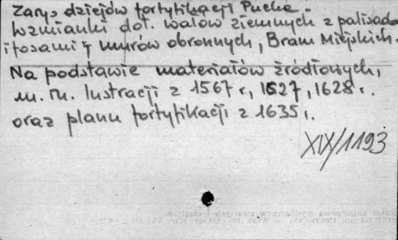 Zarys dziejów fortyfikacji Pucka.
Wzmianki dot. wałów ziemnych z palisadą
i fosami i murów obronnych, Bram Miejskich.
Na podstawie materiałów źródłowych,
m. in. lustracji z 1567 r, 1627, 1628 r.
oraz planu fortyfikacji z 1635 r.
XIX/1193